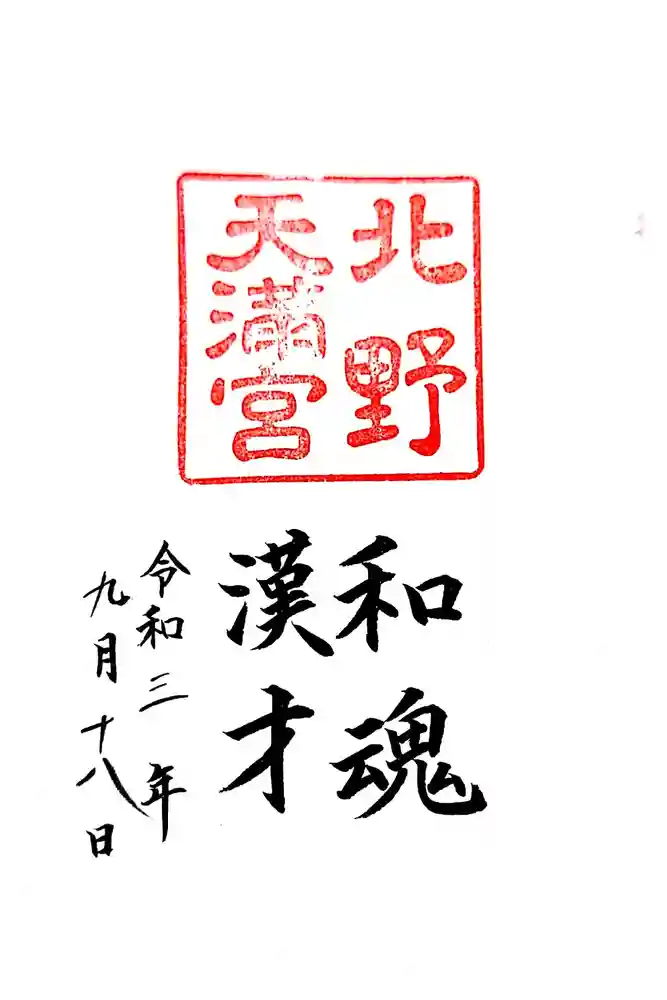 北野
天満宮
和魂
漢才
令和三年
九月十八日